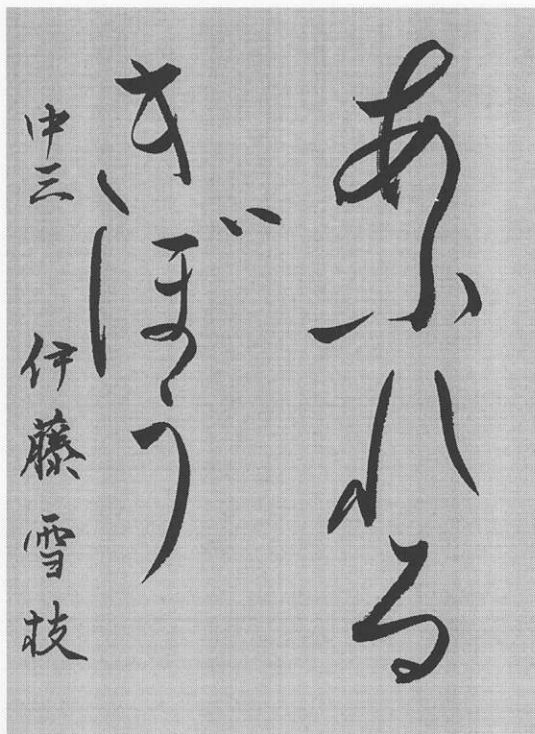 あふれる
きぼう
中三 伊藤雪枝